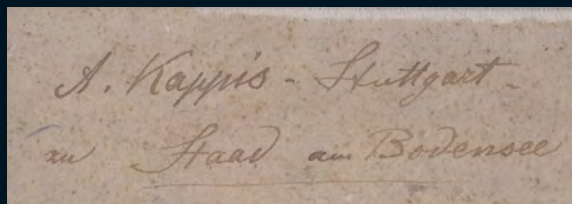 A. Kappis - Stuttgart -
zu Staad am Bodensee